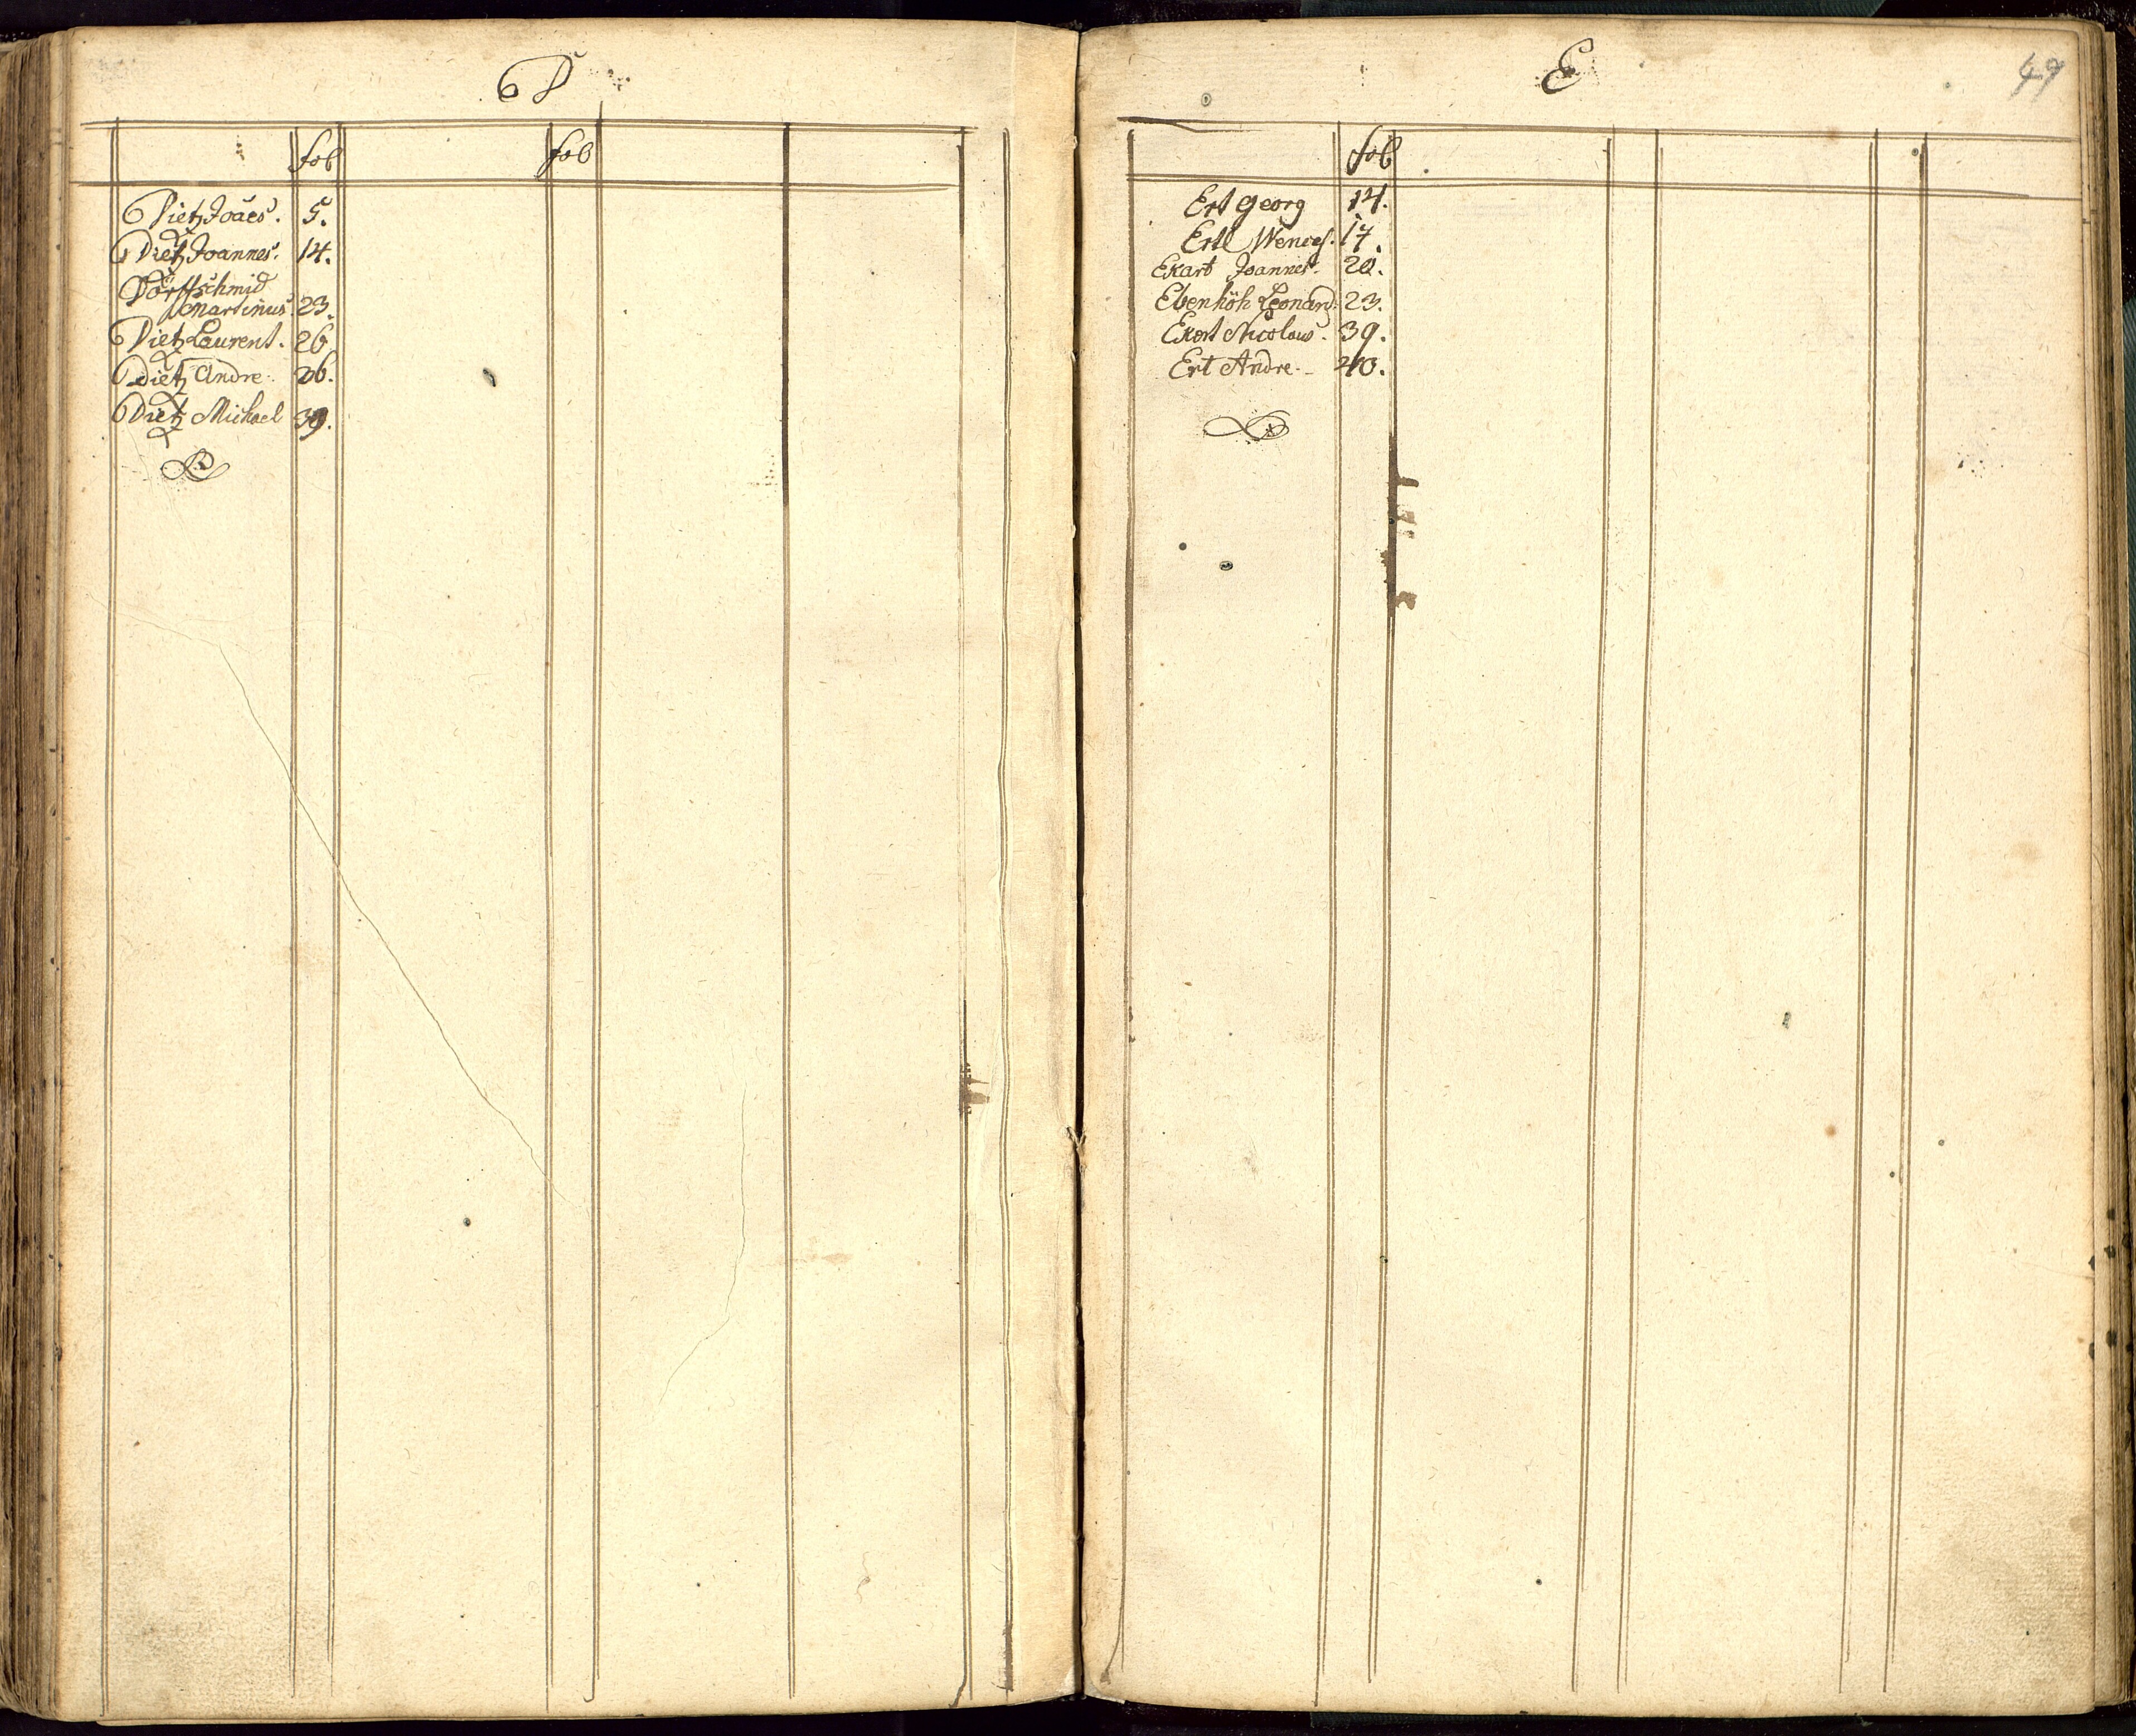 D
fol fol
Dietz Joães. 5.
Dietz Joannes. 14.
Dörffschmid
Martinus. 23.
Dietz Laurent. 26
Dietz Andre. 26.
Dietz Michael 39.
E
49
fol
Ert Georg 14.
Ertl Wences. 17.
Ekart Joannes. 20.
Ebenhöh Leonard: 23.
Ekart Nicolaus. 39.
Ert Andre. 40.